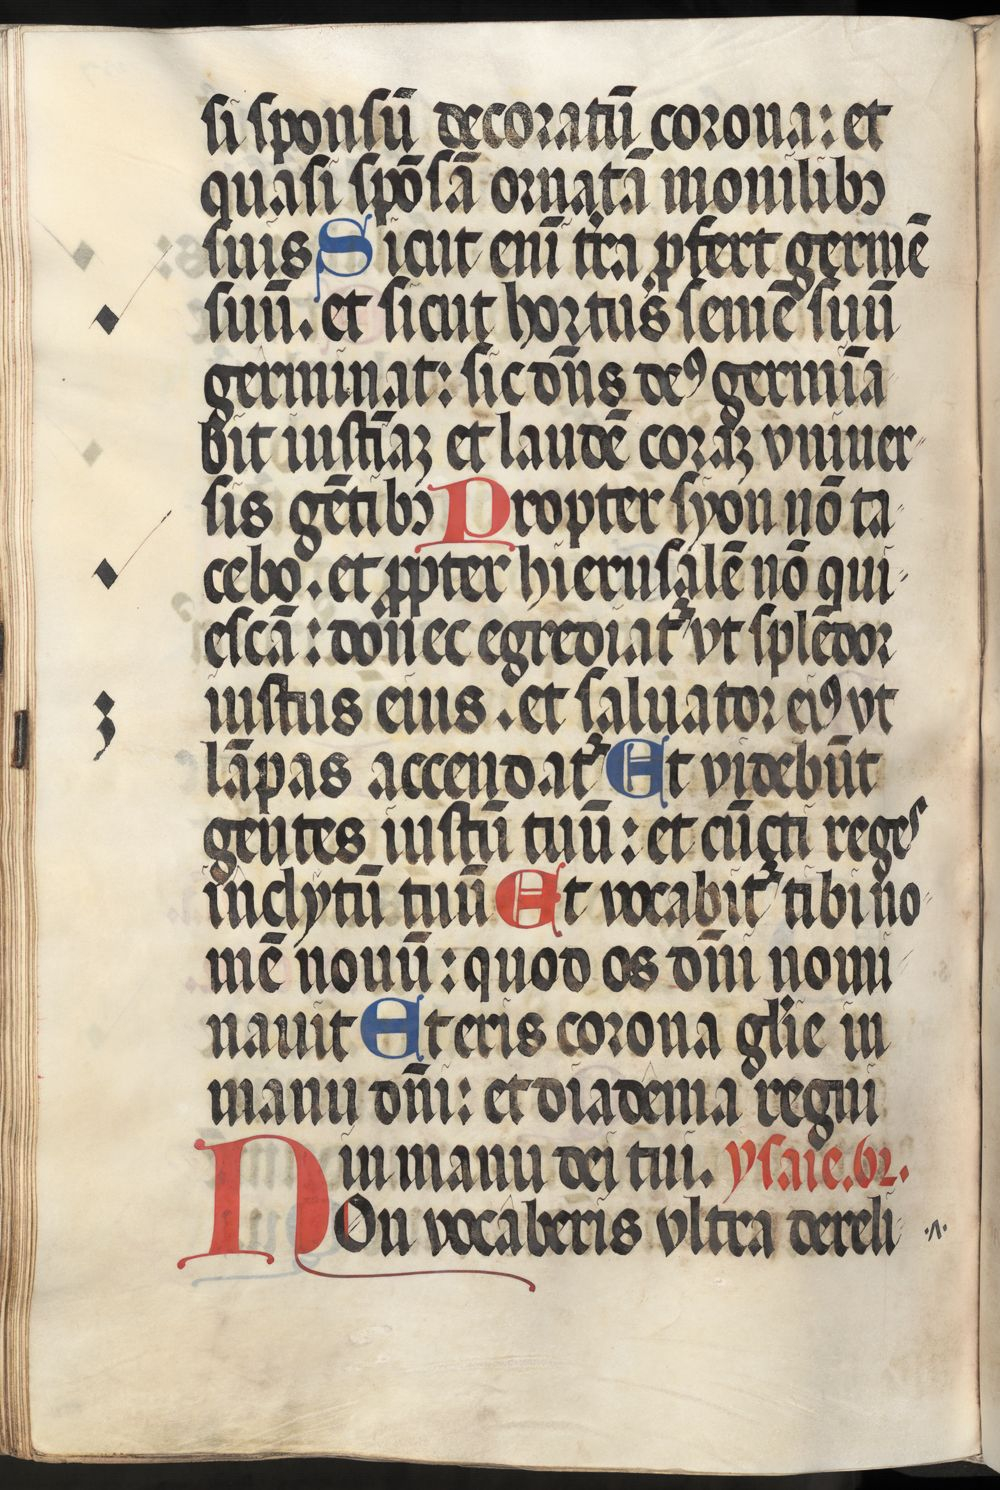 si sponsū decoratū corona: et
quasi spōsā ornatā monilibꝫ
suis Sicut enī tra ꝓfert germē
suū. et sicut hortus semē suū
germinat: sic dn̄s deꝰ germīa
bit iustīaꝫ et laudē coraꝫ vniuer
sis gētibꝫ Propter syon nō ta
cebo. et ꝓpter hierusalē nō qui
escā: donec egrediat᷑ vt splēdor
iustus eius. et saluator eiꝰ vt
lāpas accendat᷑ Et videbūt
gentes iustū tuū: et cūcti reges
inclytū tuū Et vocabit᷑ tibi no
mē nouū: quod os dn̄i nomi
nauit Et eris corona glīe in
manu dn̄i: et diadema regni
in manu dei tui. ysaie. 62.
NOn vocaberis vltra dereli